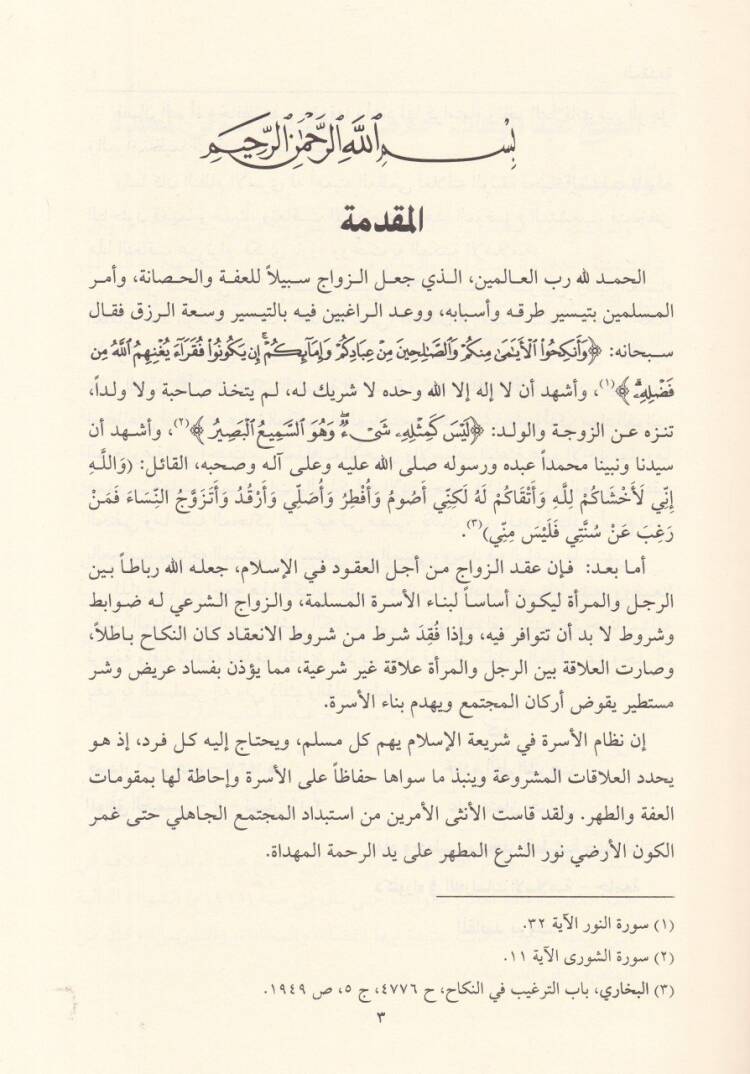 بِسْمِ ٱللَّهِ ٱلرَّحْمَٰنِ ٱلرَّحِيمِ
المقدمة
الحمد لله رب العالمين، الذي جعل الزواج سبيلاً للعفة والحصانة، وأمر
المسلمين بتيسير طرقه وأسبابه، ووعد الراغبين فيه بالتيسير وسعة الرزق فقال
سبحانه: ﴿وَأَنكِحُوا۟ ٱلْأَيَٰمَىٰ مِنكُمْ وَٱلصَّٰلِحِينَ مِنْ عِبَادِكُمْ وَإِمَآئِكُمْ ۚ إِن يَكُونُوا۟ فُقَرَآءَ يُغْنِهِمُ ٱللَّهُ مِن
فَضْلِهِۦ ۗ﴾(١)، وأشهد أن لا إله إلا الله وحده لا شريك له، لم يتخذ صاحبة ولا ولداً،
تنزه عن الزوجة والولد: ﴿لَيْسَ كَمِثْلِهِۦ شَىْءٌ ۖ وَهُوَ ٱلسَّمِيعُ ٱلْبَصِيرُ﴾(٢)، وأشهد أن
سيدنا ونبينا محمداً عبده ورسوله صلى الله عليه وعلى آله وصحبه، القائل: (وَاللَّهِ
إِنِّي لَأَخْشَاكُمْ لِلَّهِ وَأَتْقَاكُمْ لَهُ لَكِنِّي أَصُومُ وَأُفْطِرُ وَأُصَلِّي وَأَرْقُدُ وَأَتَزَوَّجُ النِّسَاءَ فَمَنْ
رَغِبَ عَنْ سُنَّتِي فَلَيْسَ مِنِّي)(٣).
أما بعد: فإن عقد الزواج من أجل العقود في الإسلام، جعله الله رباطاً بين
الرجل والمرأة ليكون أساساً لبناء الأسرة المسلمة، والزواج الشرعي له ضوابط
وشروط لا بد أن تتوافر فيه، وإذا فُقِدَ شرط من شروط الانعقاد كان النكاح باطلاً،
وصارت العلاقة بين الرجل والمرأة علاقة غير شرعية، مما يؤذن بفساد عريض وشر
مستطير يقوض أركان المجتمع ويهدم بناء الأسرة.
إن نظام الأسرة في شريعة الإسلام يهم كل مسلم، ويحتاج إليه كل فرد، إذ هو
يحدد العلاقات المشروعة وينبذ ما سواها حفاظاً على الأسرة وإحاطة لها بمقومات
العفة والطهر. ولقد قاست الأنثى الأمرين من استبداد المجتمع الجاهلي حتى غمر
الكون الأرضي نور الشرع المطهر على يد الرحمة المهداة.
(١) سورة النور الآية ٣٢.
(٢) سورة الشورى الآية ١١.
(٣) البخاري، باب الترغيب في النكاح، ح ٤٧٧٦، ج ٥، ص ١٩٤٩.
٣